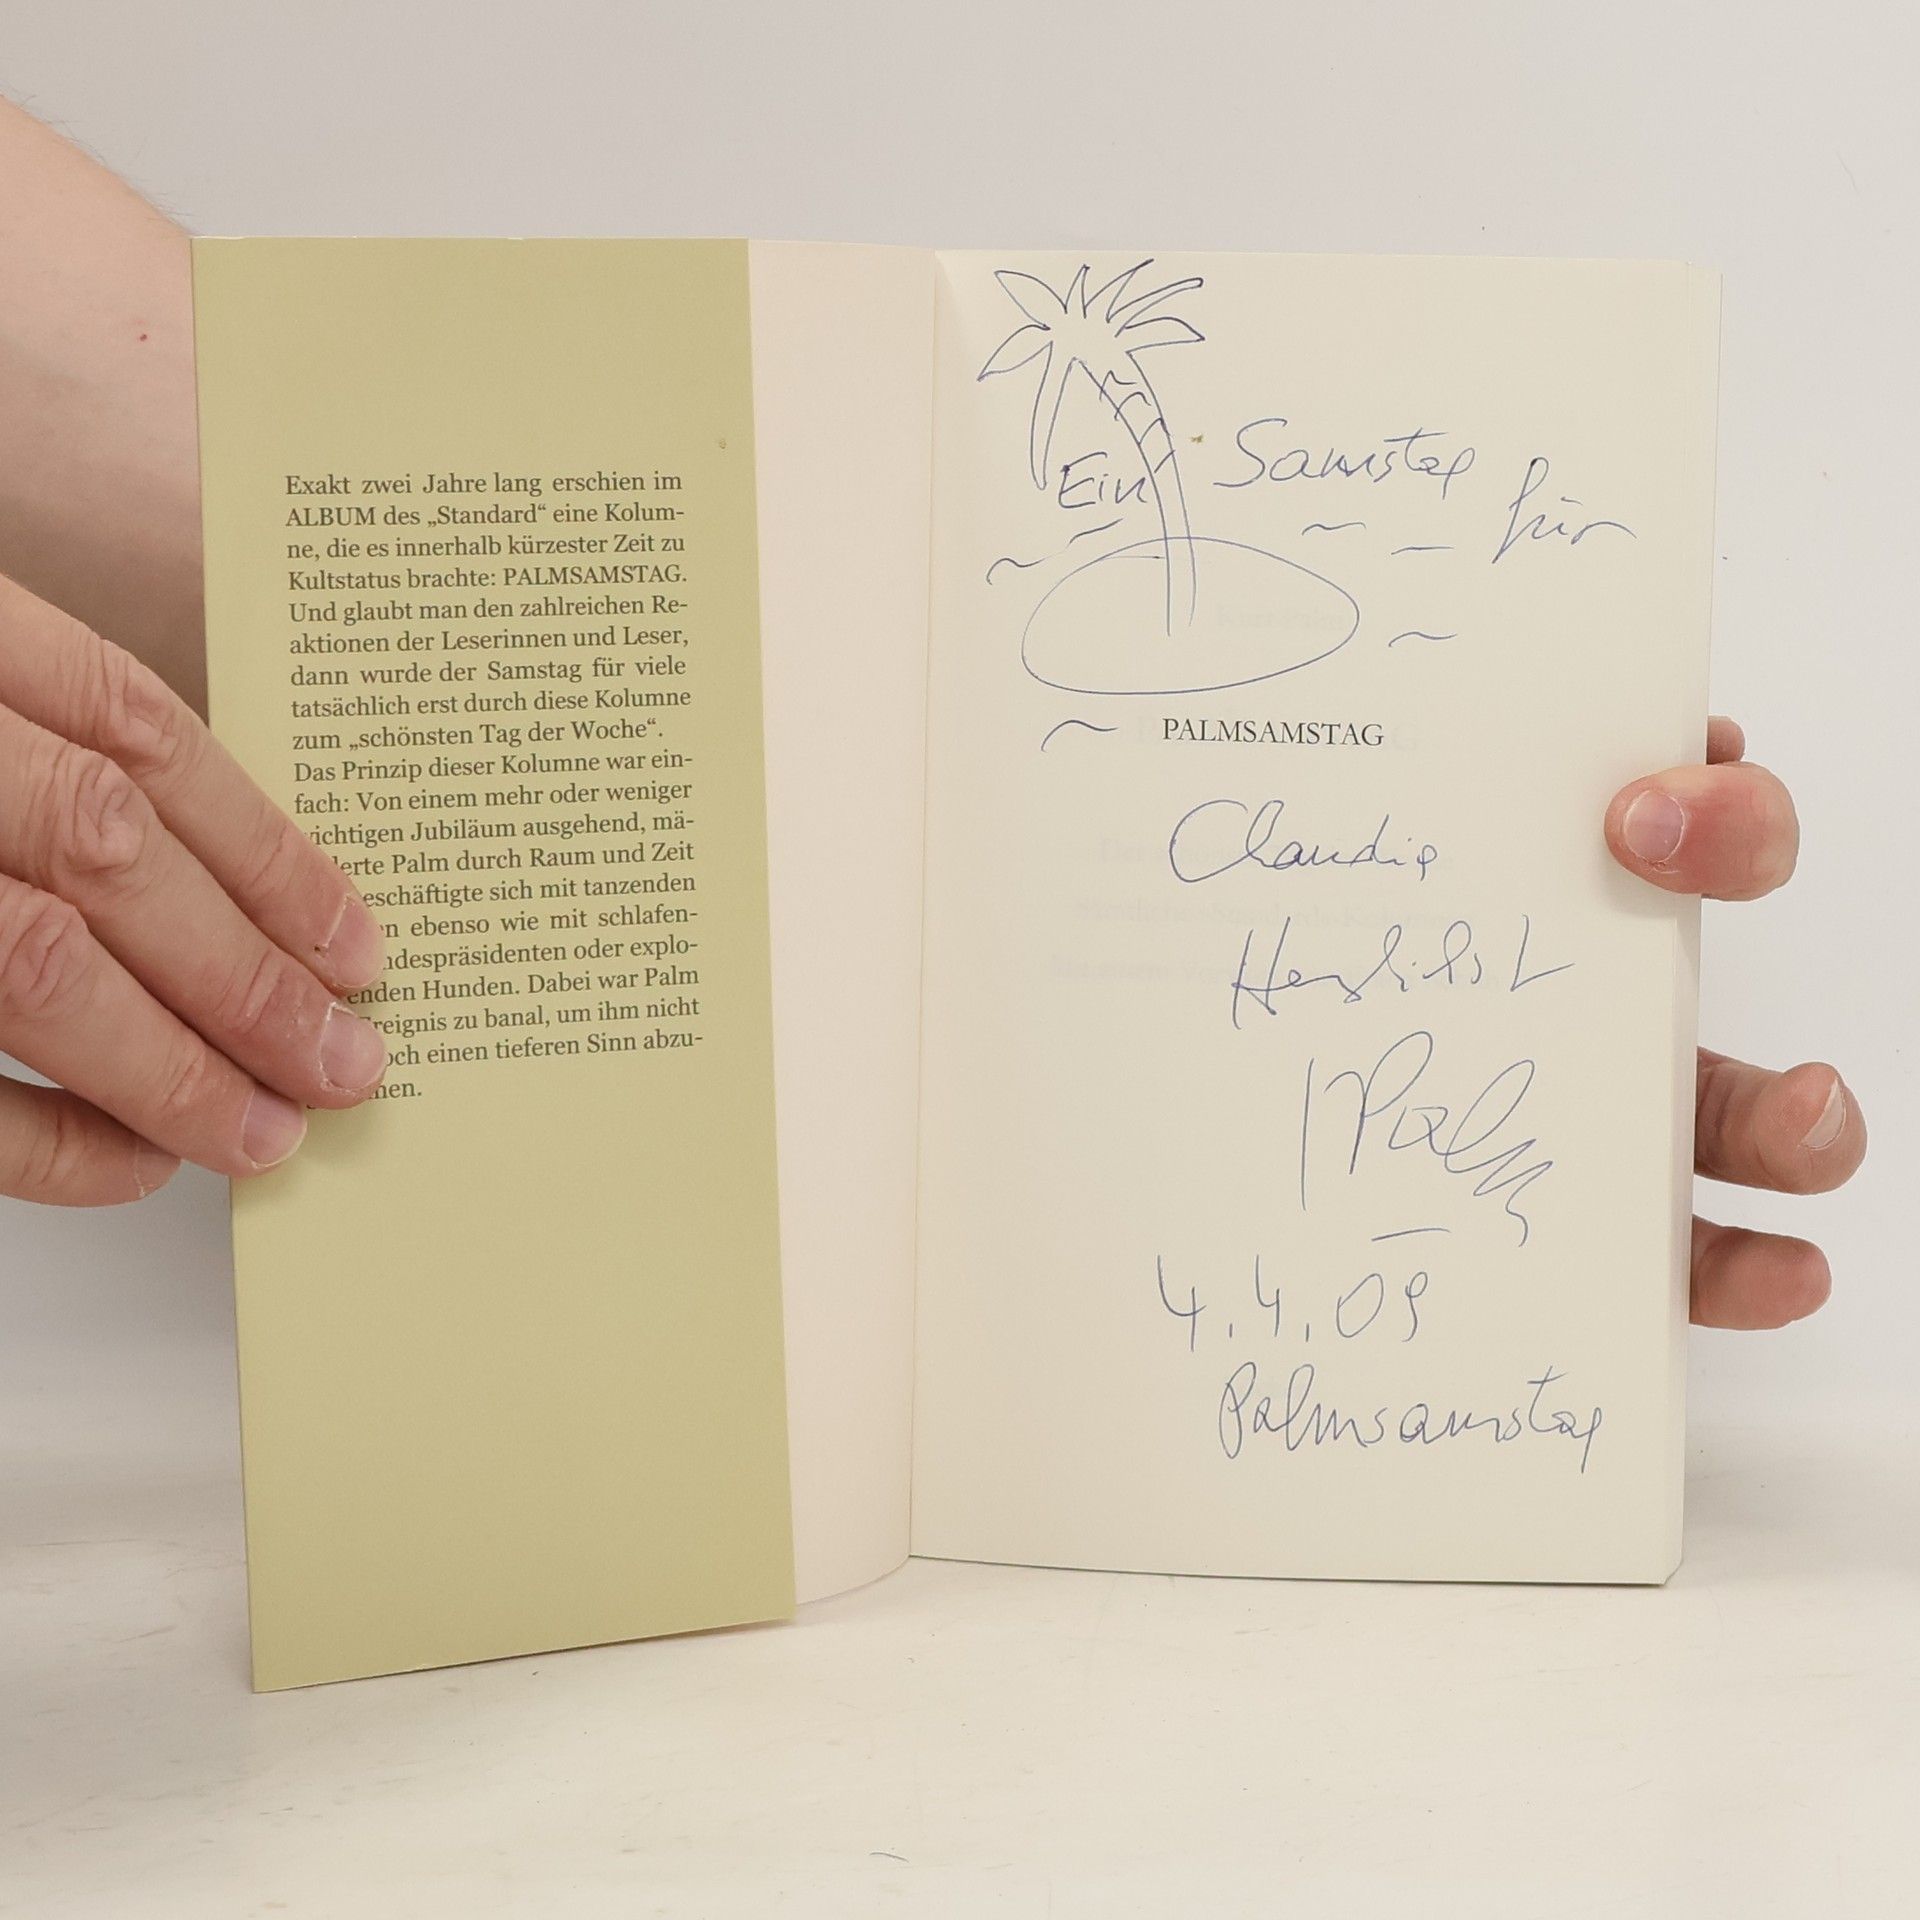 Exakt zwei Jahre lang erschien im
ALBUM des „Standard“ eine Kolum-
ne, die es innerhalb kürzester Zeit zu
Kultstatus brachte: PALMSAMSTAG.
Und glaubt man den zahlreichen Re-
aktionen der Leserinnen und Leser,
dann wurde der Samstag für viele
tatsächlich erst durch diese Kolumne
zum „schönsten Tag der Woche“.
Das Prinzip dieser Kolumne war ein-
fach: Von einem mehr oder weniger
ichtigen Jubiläum ausgehend, mä-
erte Palm durch Raum und Zeit
eschäftigte sich mit tanzenden
n ebenso wie mit schlafen-
ndespräsidenten oder explo-
enden Hunden. Dabei war Palm
reignis zu banal, um ihm nicht
och einen tieferen Sinn abzu-
nen.
Ein Samstag für
PALMSAMSTAG
Claudia
Herzlichst
Palm
4.4.09
Palmsamstag